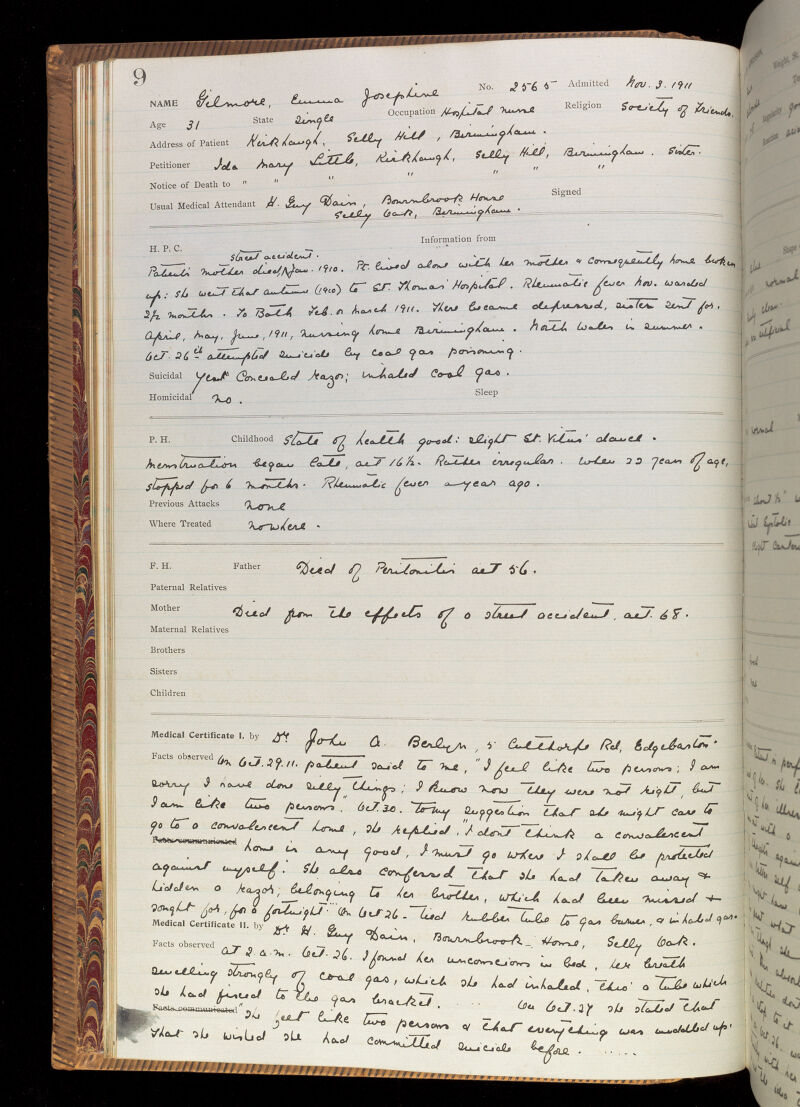 9
NAME Gilmore, Emma Josephine No. 2565 Admitted Nov. 3. 1911
Age 31 State Single Occupation Hospital nurse Religion Society of Friends.
Address of Patient Kirkhaugh, Selly Hill, Birmingham.
Petitioner Ida Mary Little, Kirkhaugh, Selly Hill, Birmingham. Sister.
Notice of Death to " " " " " "
Usual Medical Attendant H. Guy Dain, Bournbrook House Signed
Selly Oak, Birmingham.
H. P. C. Information from
street accident.
Patient's mother died Jan. 1910. Pt. lived alone with her mother & consequently home broken
up: she went that autumn (1910) to St. Thomas' Hospital. Rheumatic fever Nov. warded
2½ months. To Bath Feb. or March 1911. There became depressed, sister sent for.
April, May, June, 1911, nursing home Birmingham. North Wales in summer.
Oct. 26th attempted suicide by coal gas poisoning.
Suicidal Yes Concealed razor; inhaled coal gas.
Homicidal No. Sleep
P. H. Childhood State of health good: slight St. Vitus' dance.
Menstruation began late, aet 16½. Rather irregular. When 22 years of age,
stopped for 6 months. Rheumatic fever a year ago.
Previous Attacks None
Where Treated Nowhere.
F. H. Father Died of Peritonitis aet 56.
Paternal Relatives
Mother Died from the effects of a street accident, aet. 68.
Maternal Relatives
Brothers
Sisters
Children
Medical Certificate I. by Dr John A. Berlyn, 5 Calthorpe Rd, Edgebaston.
Facts observed On Oct. 29. 11. patient said to me, "I feel like two persons; I am
sorry I have done silly things; I know now they were not right, but
I am like two persons." Oct. 30. To my suggestion that she might care to
go to a convalescent home, she replied, "I dont think a convalescent
home is any good, I must go where I shall be protected
against myself." She also confessed that she had taken away &
hidden a razor, belonging to her brother, which had been missed &
sought for, for a fortnight. On Oct 26 - tied rubber tube to gas burner, & inhaled gas.
Medical Certificate II. by Dr H. Guy Dain, Bournbrook House, Selly Oak.
Facts observed At 2 a.m. Oct. 26. I found her unconscious in bed, her breath
smelling strongly of coal gas, which she had inhaled, thro' a tube which
she had fixed to the gas bracket. ... On Oct. 27 she stated that
Facts communicated "She felt like two persons & that everything was muddled up"
that she wished she had committed suicide before. ......